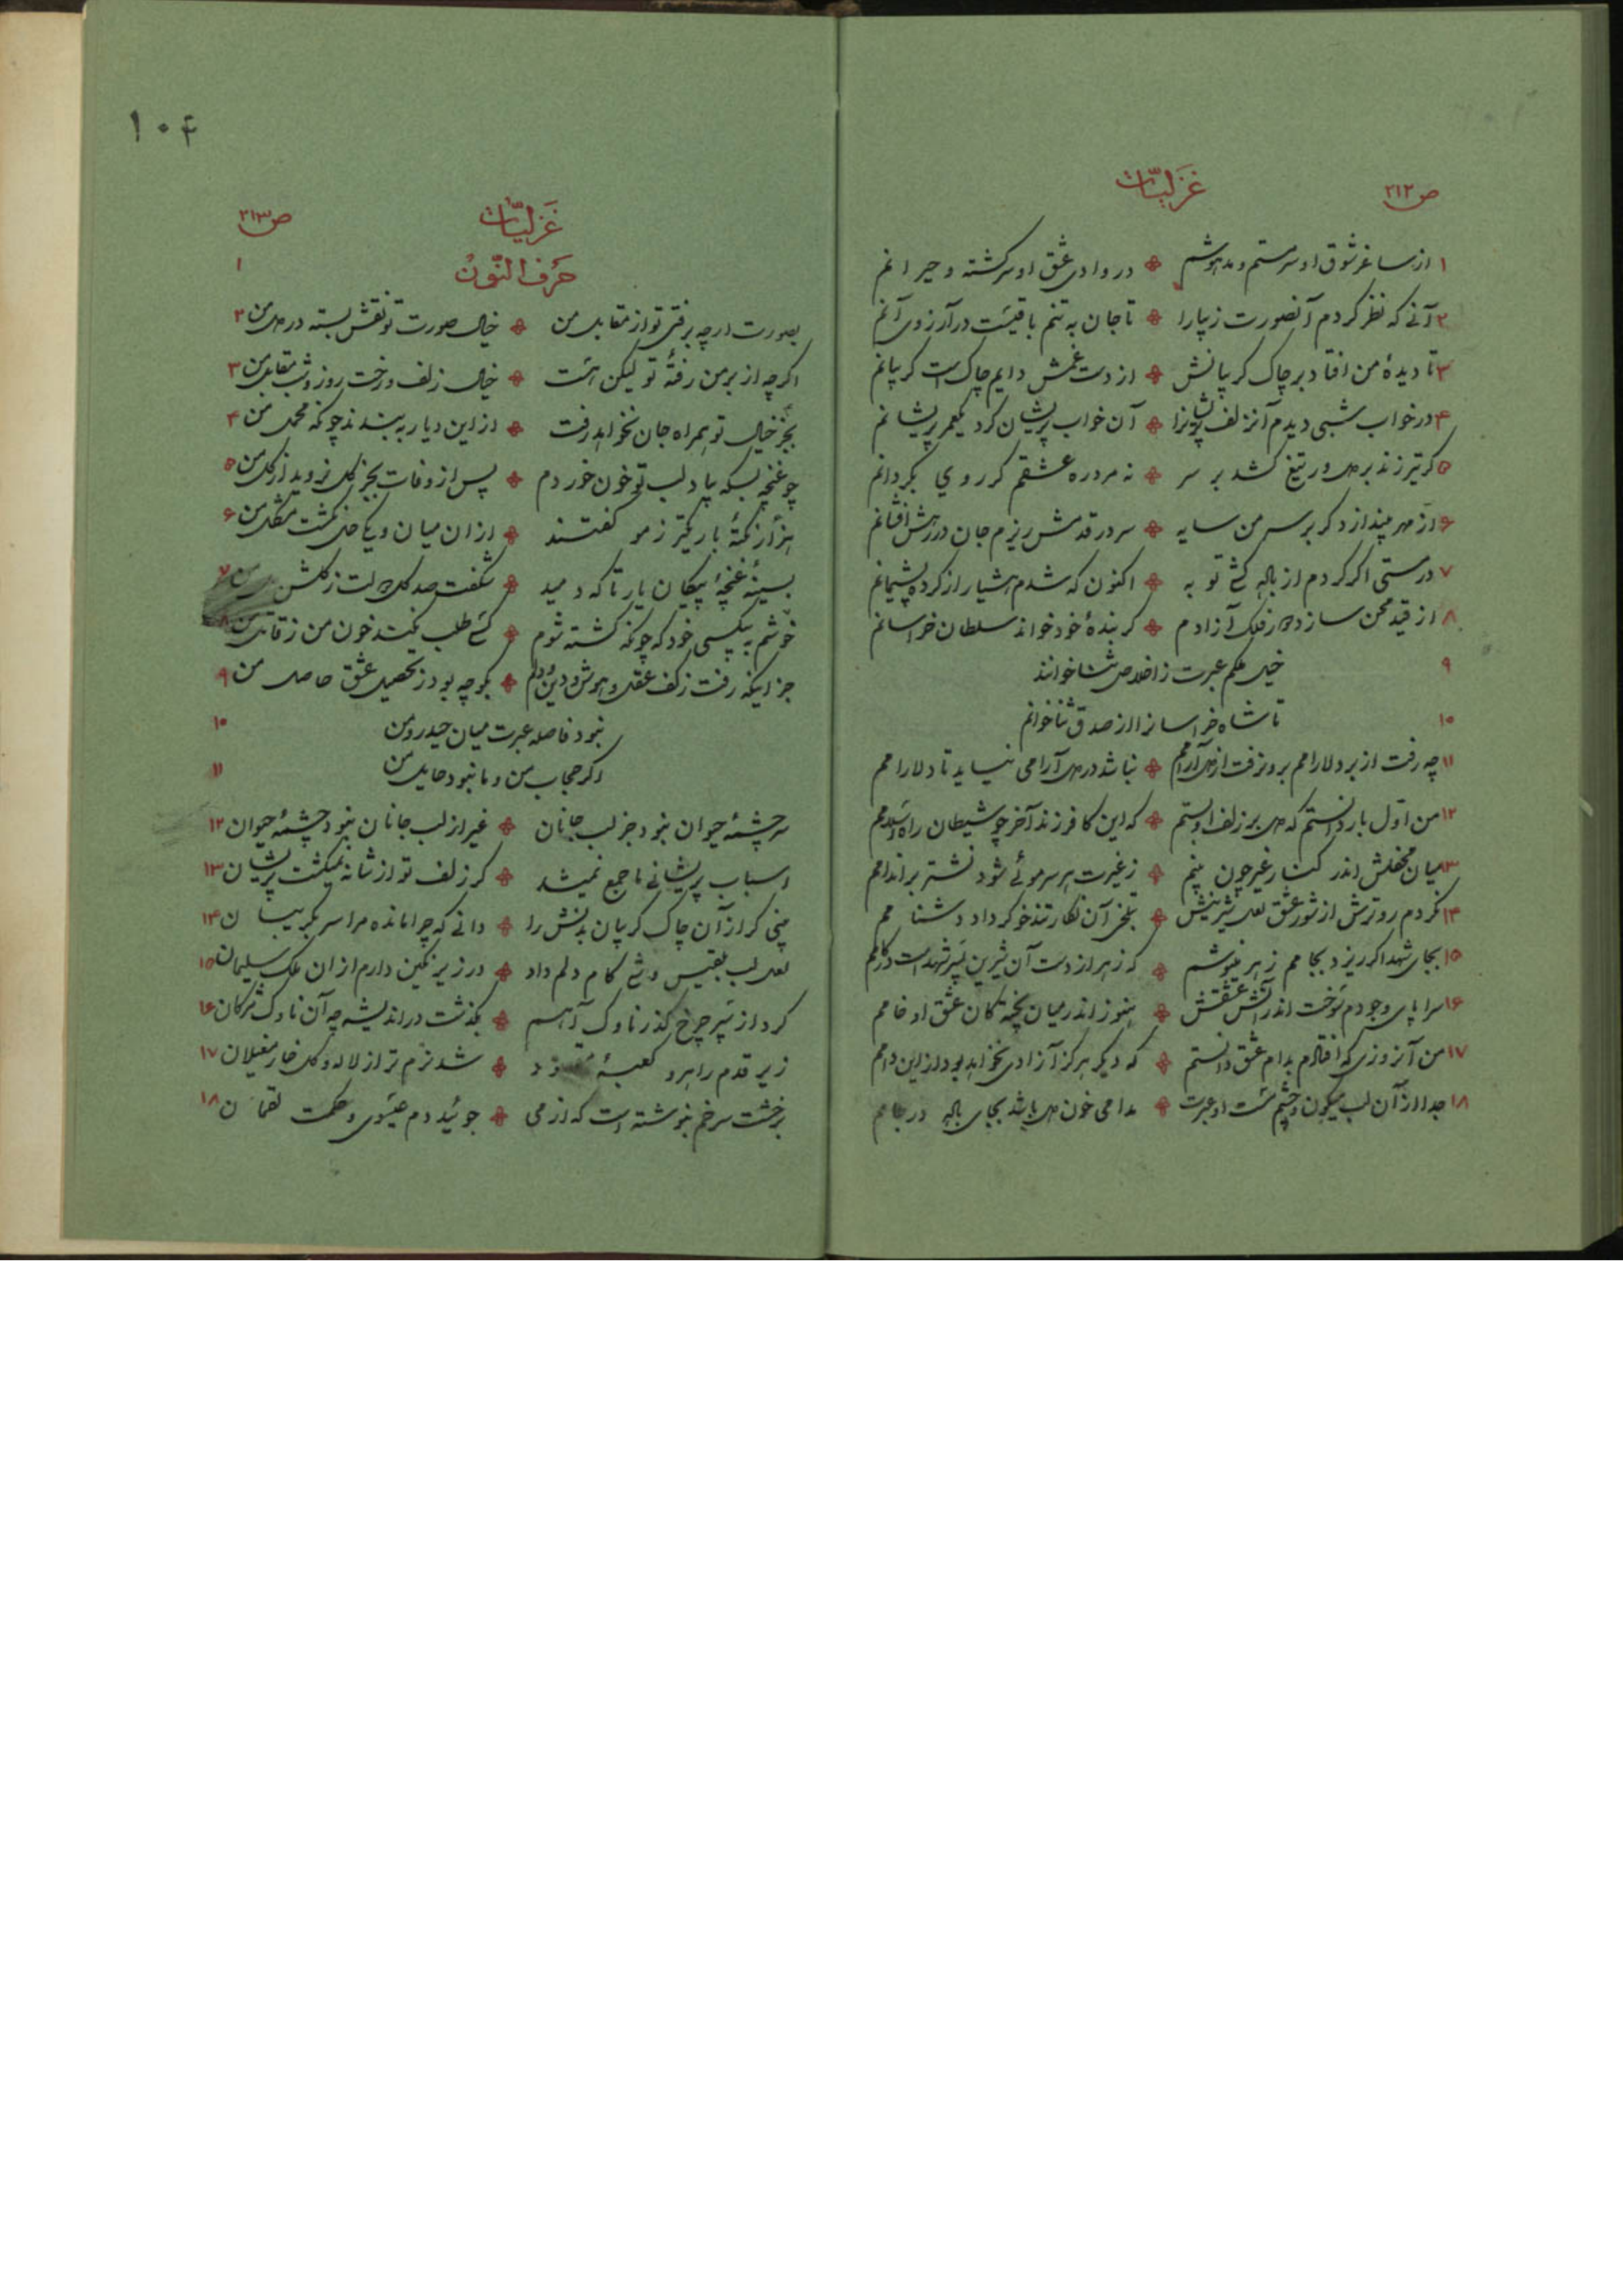 ص ۲۱۲
غزلیّات
۱ از ساغر شوق او سرمستم و مدهوشم در وادی عشق او سرگشته و حیرانم
۲ آنی که نظر کردم آنصورت زیبارا تا جان به تنم باقیست در آرزوی آنم
۳ تا دیدهٔ من افتاد بر چاک کریبانش از دست غمش دایم چاک است کریبانم
۴ در خواب شبی دیدم آنزلف پریشانرا آن خواب پریشان کرد یکعمر پریشانم
۵ کر تیر زند بر دل ور تیغ کشد بر سر نه مرد ره عشقم کر روی بکردانم
۶ از مهر بیندازد کر بر سر من سایه سر در قدمش ریزم جان در رهش افشانم
۷ در مستی اکر کردم از باده کشی توبه اکنون که شدم هشیار از کرده پشیمانم
۸ از قید محن سازد فلک آزادم کر بندهٔ خود خواند سلطان خراسانم
۹ خیل عبرت ز اخلاص ثنا خوانند
۱۰ تا شاه خراسانرا از صدق ثنا خوانم
۱۱ چه رفت از بر دلارامم برون رفت از دل آرامم نباشد در دل آرامی نیاید تا دلارامم
۱۲ من اوّل بار دانستم که دل بر زلف او بستم که این کافر زند آخر چو شیطان راه اسلامم
۱۳ میان محفلش اندر کنار غیر چون بینم ز غیرت هر سر موئی شود نشتر بر اندامم
۱۴ نکردم رو ترش از شور عشق لعل شیرینش بتلخی آن نکار تندخو کر داد دشنامم
۱۵ بجای شهد اکر ریزد بجامم زهر مینوشم که زهر از دست آن شیرین پسر شهد است در کامم
۱۶ سراپای وجودم سوخت اندر آتش عشقش هنوز اندر میان پختکان عشق او خامم
۱۷ من آنروزی که افتادم بدام عشق دانستم که دیکر هرکز آزادی نخواهد بود از این دامم
۱۸ جدا از آن لب میکون و چشم مست او عبرت مدامی خون دل باشد بجای باده در جامم
۱۰۴
غزلیّات
ص ۲۱۳
حرف النّون
۱
بصورت ارچه برفتی تو از مقابل من خیال صورت تو نقش بسته در دل من ۲
اکرچه از بر من رفتهٔ تو لیکن هست خیال زلف و رخت روز و شب مقابل من ۳
بجز خیال تو همراه جان نخواهد رفت از این دیار به بندند چونکه محمل من ۴
چو غنچه بسکه بیاد لب تو خون خوردم پس از وفات بجز کل نروید از کل من ۵
هزار نکتهٔ باریکتر ز مو کفتند از ان میان و یکی حل نکشت مشکل من ۶
بسینهٔ غنچهٔ پیکان یار تا که دمید شکفت صد کل ز کلشن من ۷
خوشم به بیکسی خود که چونکه کشته شوم کسی طلب نکند خون من ز قاتل من ۸
جز اینکه رفت ز کف عقل و هوش و دین و دلم بکو چه بود ز تحصیل عشق حاصل من ۹
نبود فاصله عبرت میان حیدر و من ۱۰
اکر حجاب من و ما نبود حایل من ۱۱
سرچشمهٔ حیوان نبود جز لب جانان غیر از لب جانان نبود چشمهٔ حیوان ۱۲
اسباب پریشانی ما جمع نمیشد کر زلف تو از شانه نمیکشت پریشان ۱۳
بینی کر از آن چاک کریبان بدنش را دانی که چرا مانده مرا سر بکریبان ۱۴
لعل لب بلقیس وشی کام دلم داد در زیر نکین دارم از ان ملک سلیمان ۱۵
کرد از سپر چرخ کذر ناوک آهم بکذشت در اندیشه چه آن ناوک مژکان ۱۶
زیر قدم راهرو کعبهٔ مقصود شد نرم تر از لاله و کل خار مغیلان ۱۷
بر خشت سر خم بنوشته است که از می جوئید دم عیسوی و حکمت لقمان ۱۸